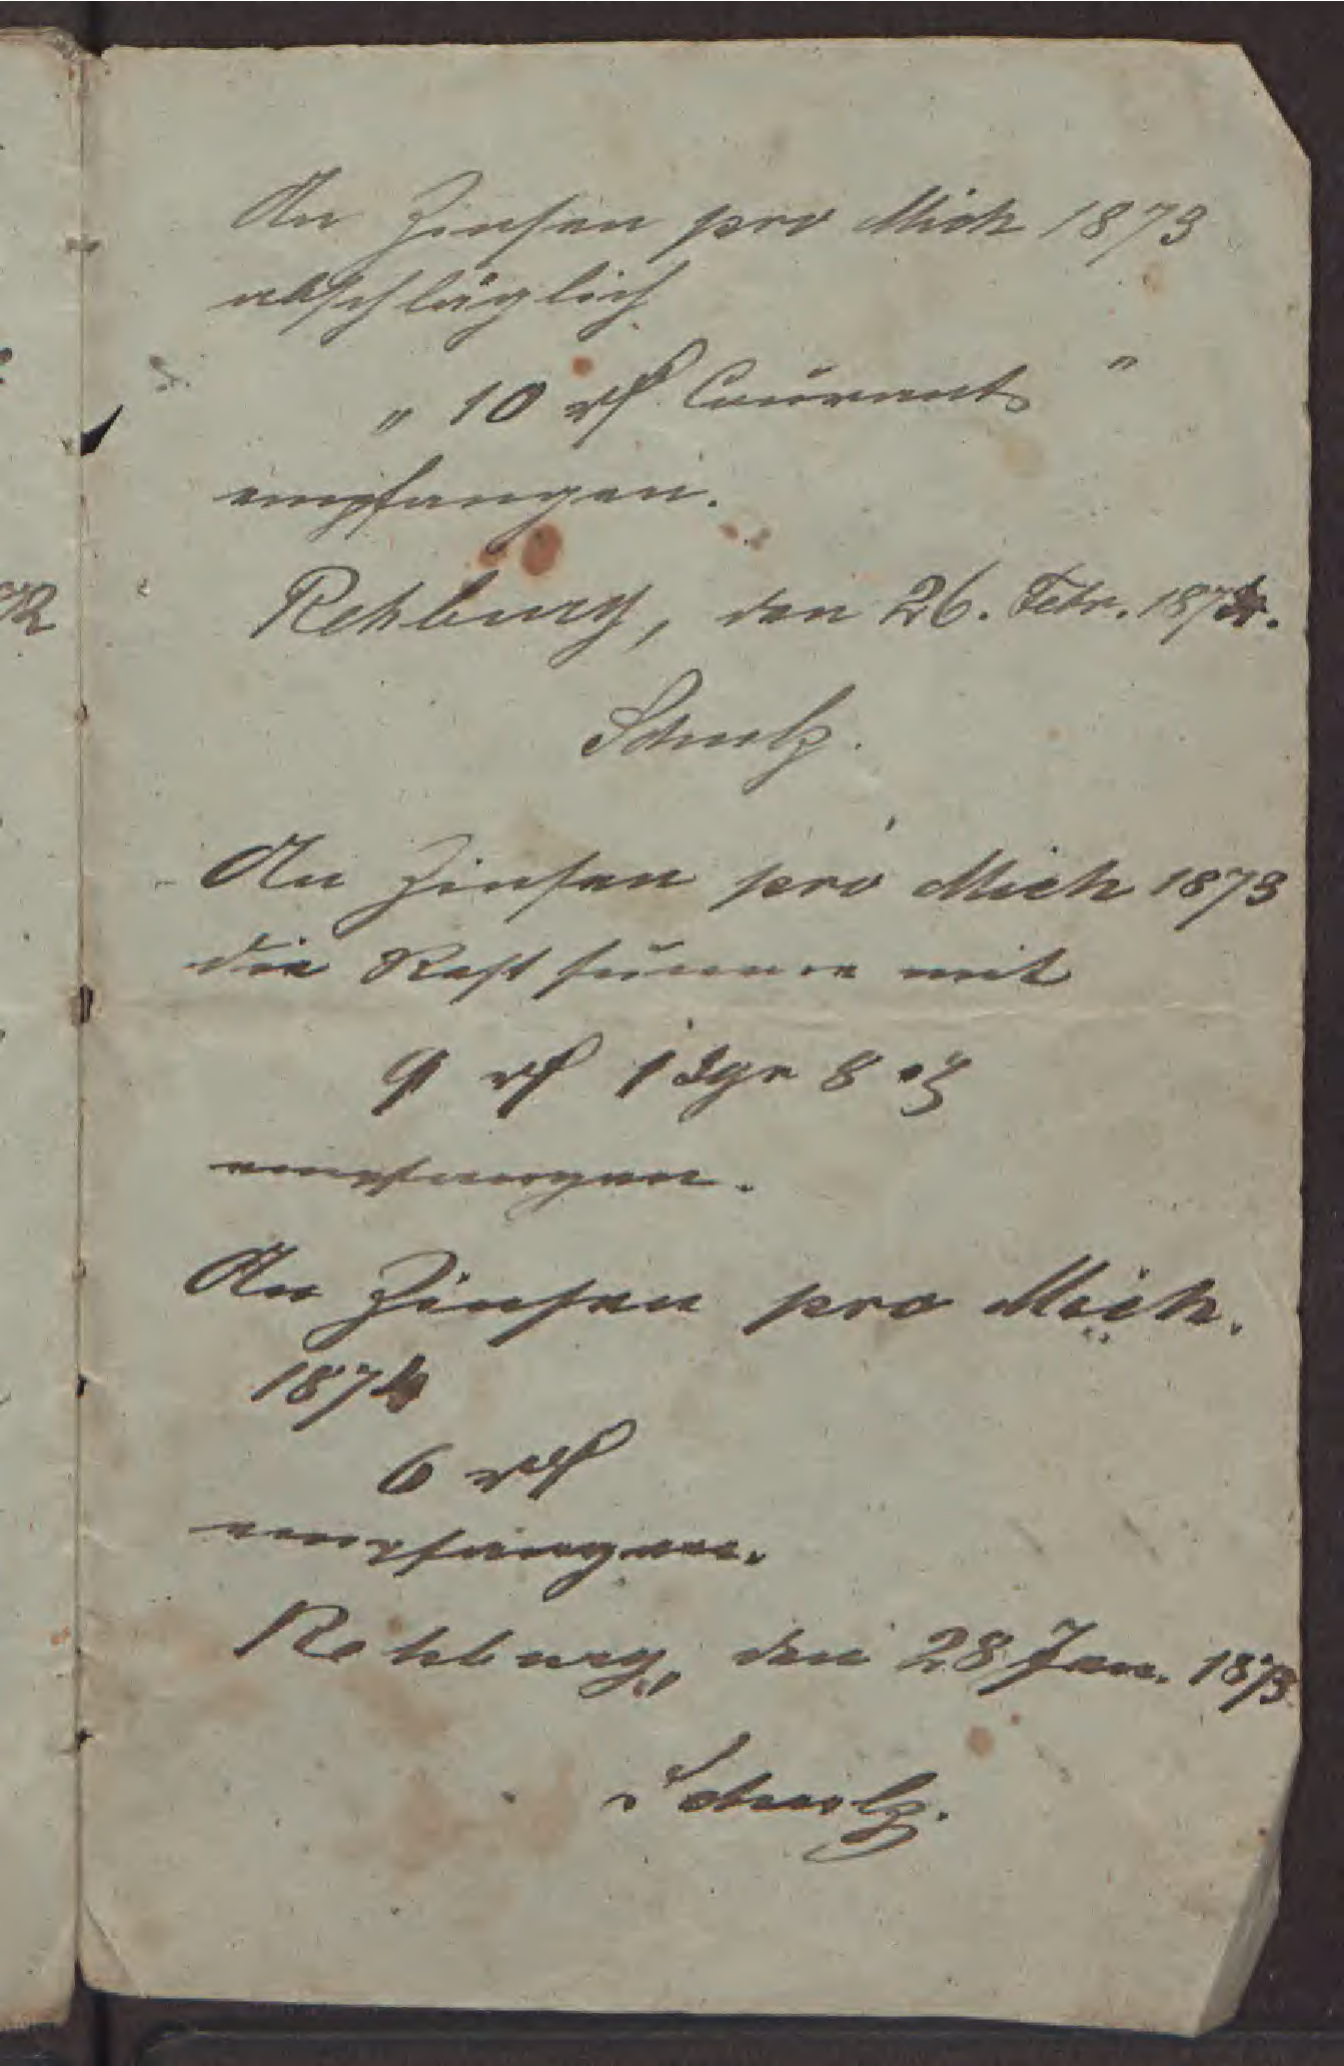 An Zinsen pro Mich 1873
abschläglich
" 10 rℓ Courant "
empfangen.
Rehburg, den 26. Febr. 1874.
Schulz.
An Zinsen pro Mich 1873
die Restsumme mit
9 rℓ 1 Sgr 8 ₰
empfangen.
An Zinsen pro Mich.
1874
6 rℓ
empfangen.
Rehburg, den 28 Jan. 1875
Schulz.